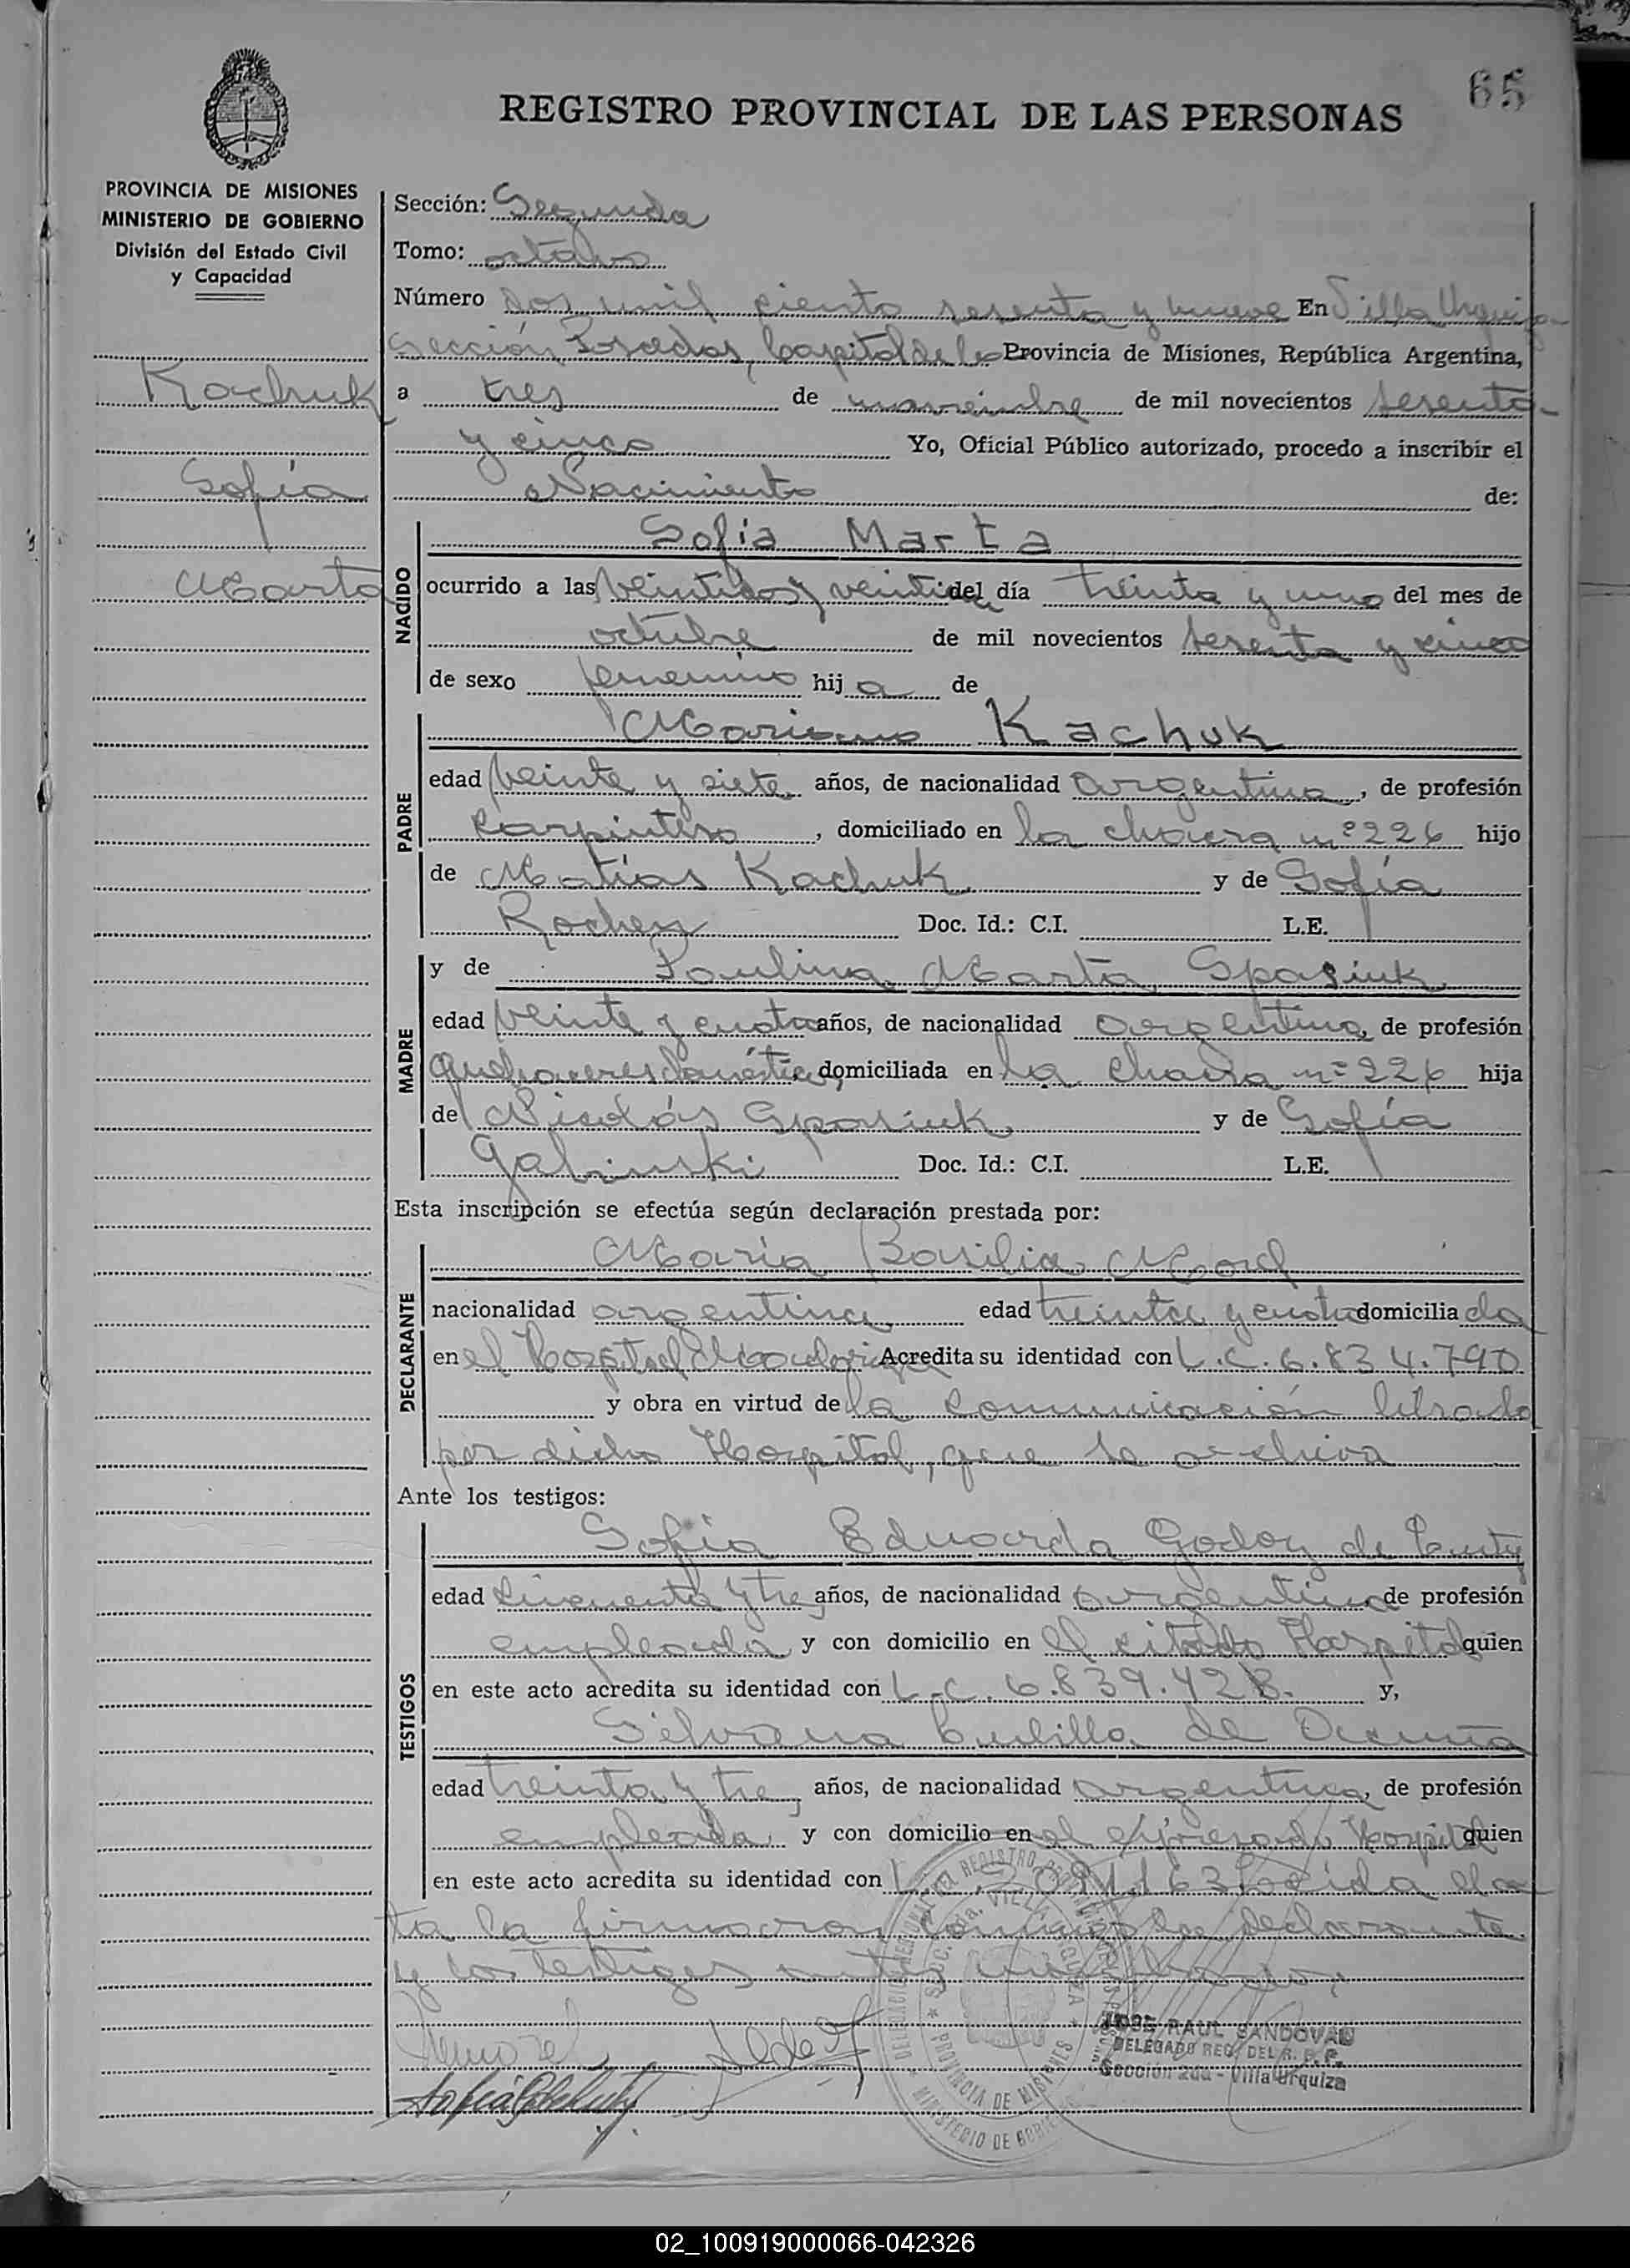 65
REGISTRO PROVINCIAL DE LAS PERSONAS
PROVINCIA DE MISIONES
MINISTERIO DE GOBIERNO
División del Estado Civil
y Capacidad
Kachuk
Sofía
Marta
Sección: Segunda
Tomo: octavo
Número dos mil ciento sesenta y nueve En Villa Urquiza
Sección Posadas, Capital de la Provincia de Misiones, República Argentina,
a tres de noviembre de mil novecientos sesenta
y cinco Yo, Oficial Público autorizado, procedo a inscribir el
Nacimiento de:
NACIDO
Sofia Marta
ocurrido a las veintidos y veinti del día treinta y uno del mes de
octubre de mil novecientos sesenta y cinco
de sexo femenino hija de
PADRE
Mariano Kachuk
edad veinte y siete años, de nacionalidad argentina, de profesión
carpintero, domiciliado en la chacra nº 226 hijo
de Matías Kachuk y de Sofía
Doc. Id.: C.I. L.E.
MADRE
y de Paulina Marta Spasiuk
edad veinte y cuatro años, de nacionalidad argentina, de profesión
quehaceres domésticos, domiciliada en la chacra nº 226 hija
de Nicolás Spasiuk y de Sofía
Galinski Doc. Id.: C.I. L.E.
Esta inscripción se efectúa según declaración prestada por:
DECLARANTE
María Basilia
nacionalidad argentina edad treinta y cuatro domiciliada
en el Hospital Madariaga Acredita su identidad con L.C. 6.834.790
y obra en virtud de la comunicación librada
por dicho Hospital, que se archiva
Ante los testigos:
TESTIGOS
Sofia Eduarda Godoy de
edad cincuenta y tres años, de nacionalidad argentina de profesión
empleada y con domicilio en el citado Hospital quien
en este acto acredita su identidad con L.C. 6.839.428. y,
Silvana de
edad treinta y tres años, de nacionalidad argentina, de profesión
empleada y con domicilio en el expresado Hospital quien
en este acto acredita su identidad con Leida el ac
ta la firmaron conmigo la declarante
y los testigos
JOSE RAUL SANDOVAL
DELEGADO REG. DEL R. P. P.
Sección 2da - Villa Urquiza
PROVINCIA DE MISIONES
02_100919000066-042326